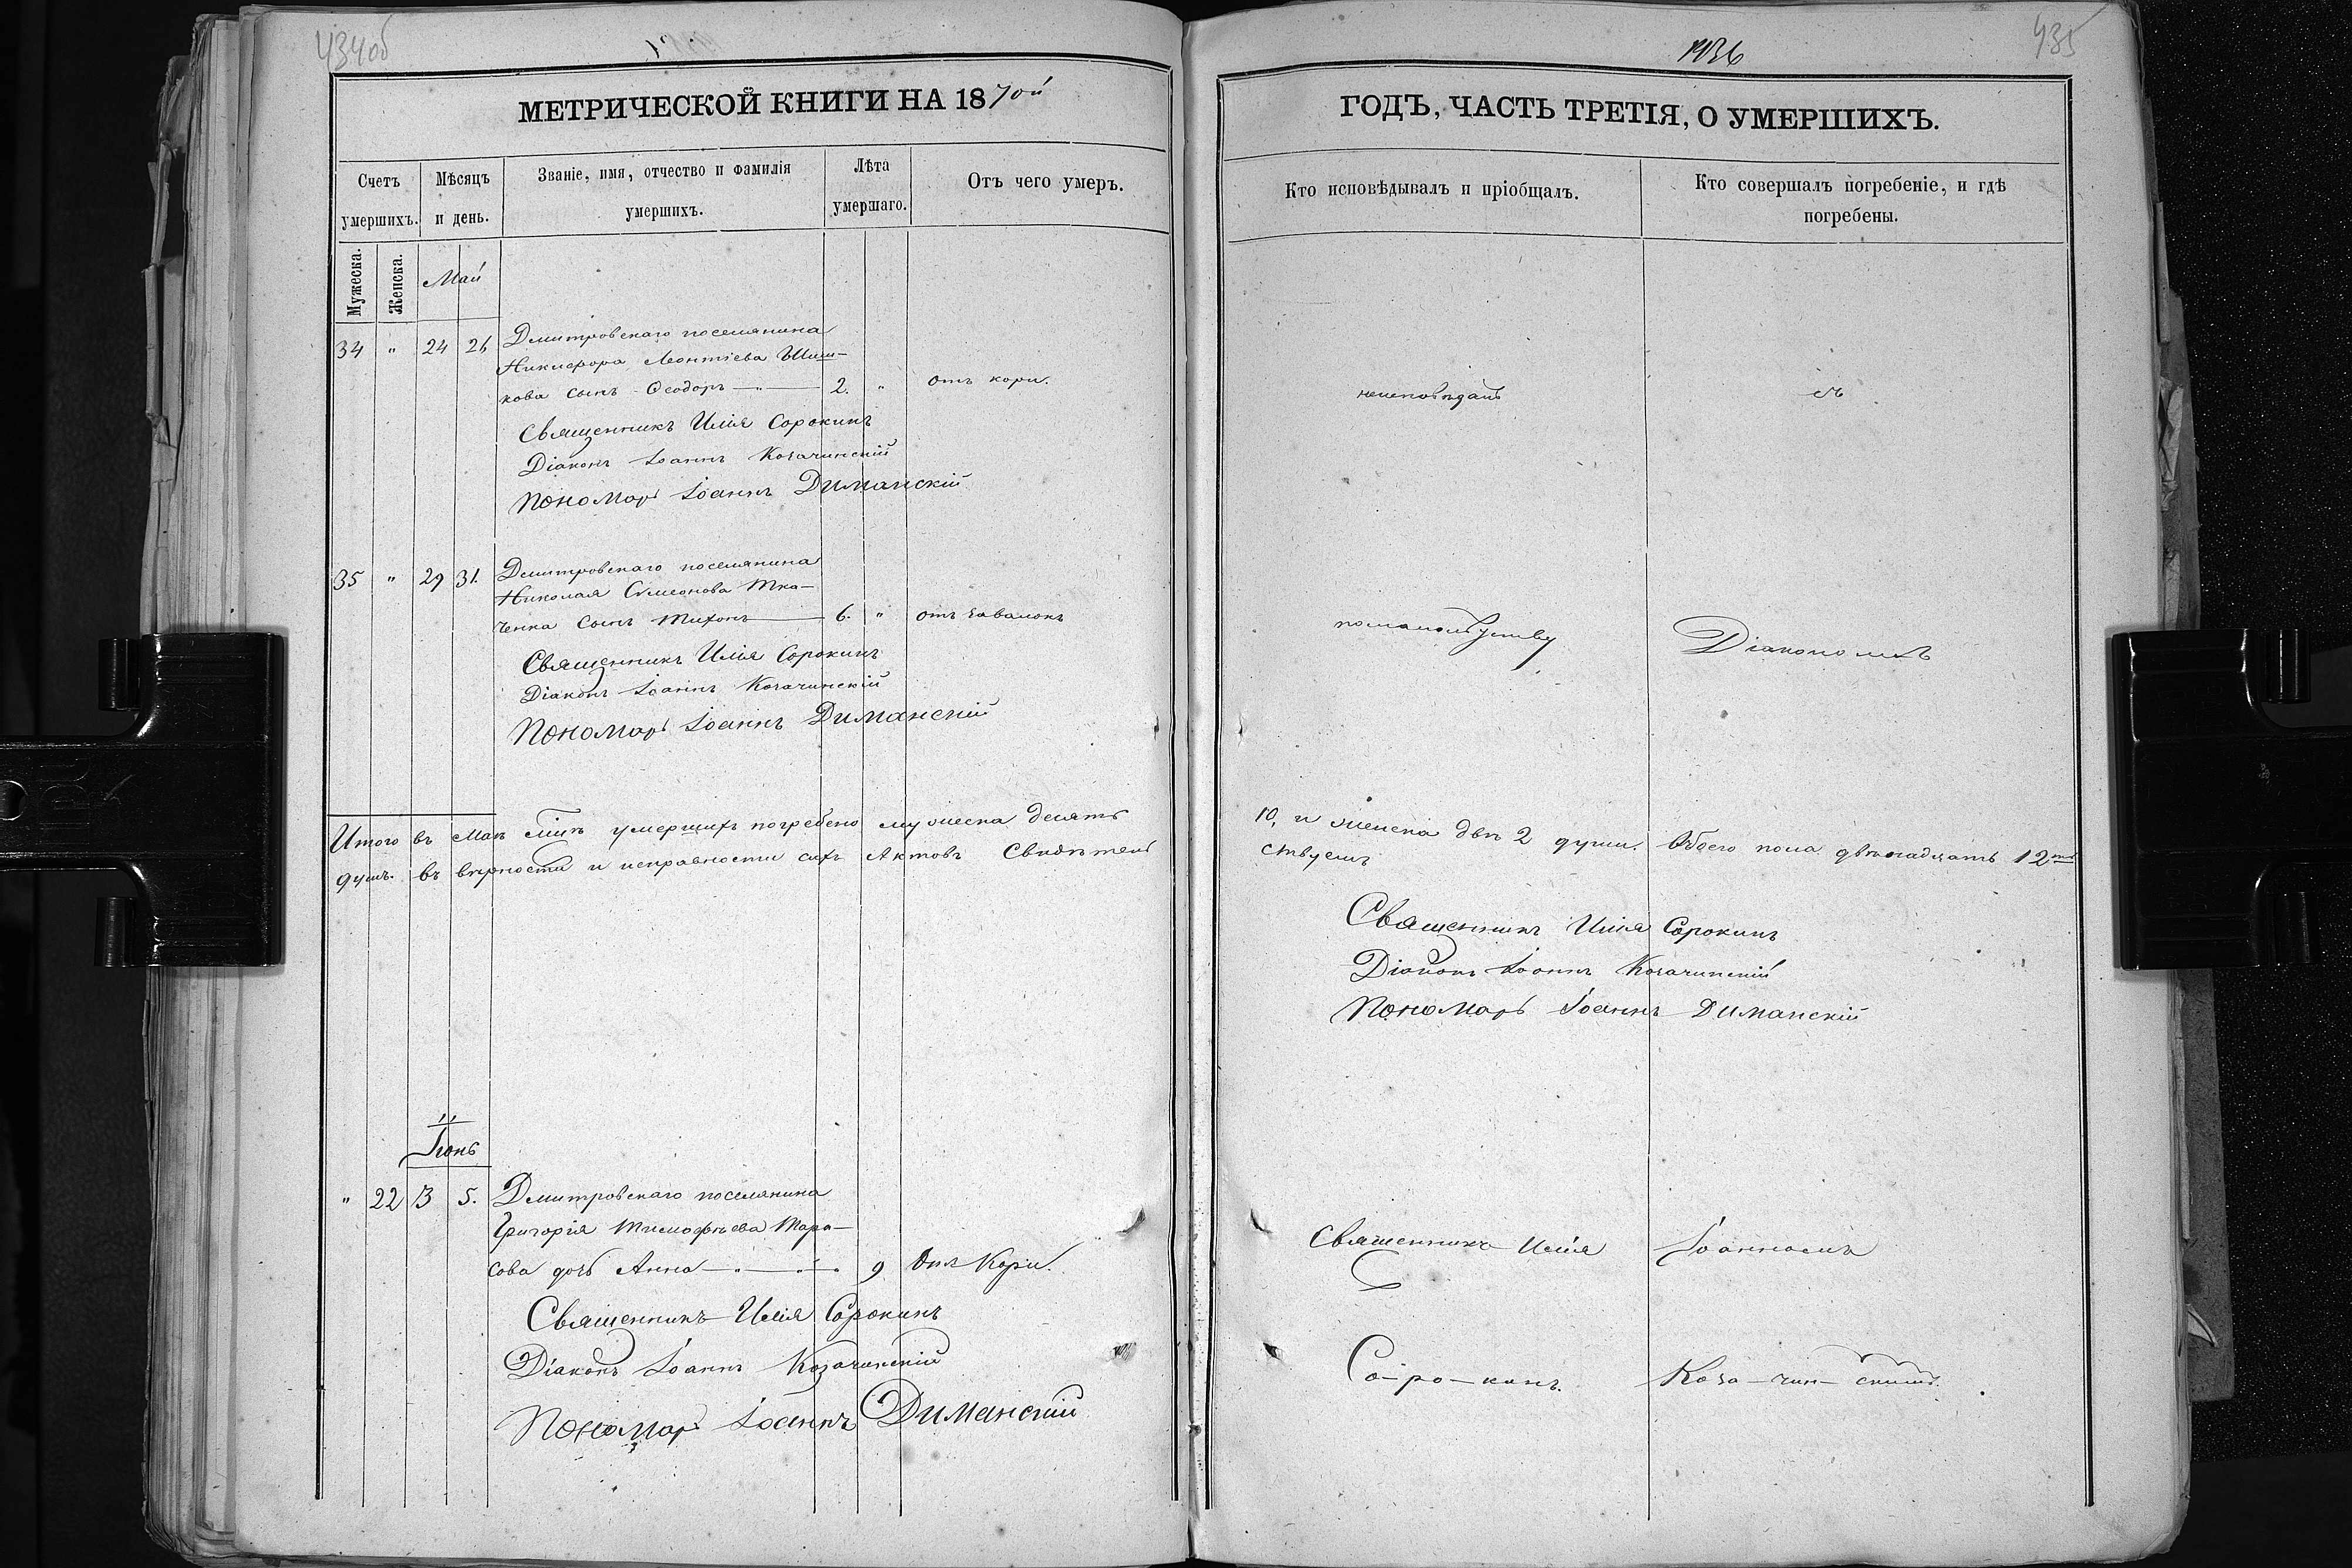 434об
МЕТРИЧЕСКОЙ КНИГИ НА 1870й
Счетъ умершихъ.
Мѣсяцъ и день.
Званіе, имя, отчество и фамилія умершихъ.
Лѣта умершаго.
Отъ чего умеръ.
Мужеска.
Женска.
Май
34 " 24 26 Дмитровскаго поселянина
Никифора Леонтіева Шиш-
кова сынъ Ѳеодоръ — " — 2. " отъ кори.
Священникъ Илія Сорокинъ
Діаконъ Іоаннъ Козачинскій
Пономарь Іоаннъ Диманскій
35 " 29 31. Дмитровскаго поселянина
Николая Симеонова Тка-
ченка сынъ Тихонъ — 6. " отъ завалокъ
Священникъ Илія Сорокинъ
Діаконъ Іоаннъ Козачинскій
Пономарь Іоаннъ Диманскій
Итого въ Маѣ мцѣ умершихъ погребено мужеска десять
душъ. въ вѣрности и исправности сихъ Актовъ Свидѣтель
Іюнь
" 22 3 5. Дмитровскаго поселянина
Григорія Тимофѣева Тара-
сова дочь Анна — " — " — " 9 Отъ Кори.
Священникъ Илія Сорокинъ
Діаконъ Іоаннъ Козачинскій
Пономарь Іоаннъ Диманскій
435
ГОДЪ, ЧАСТЬ ТРЕТІЯ, О УМЕРШИХЪ.
Кто исповѣдывалъ и пріобщалъ.
Кто совершалъ погребеніе, и гдѣ погребены.
неисповѣданъ съ
помалолѣтству Діакономъ
10, и женска двѣ 2 души. Обоего пола двѣнадцать 12ть
ствуемъ
Священникъ Илія Сорокинъ
Діаконъ Іоаннъ Козачинскій
Пономарь Іоаннъ Диманскій
Священникъ Илія Іоанномъ
Со-ро-кинъ. Коза-чин-скимъ.